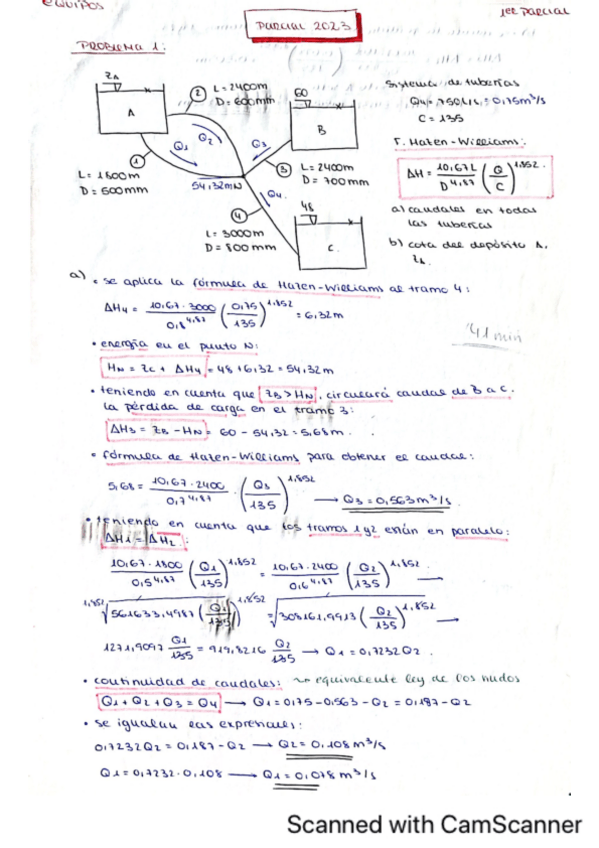 EQUIPOS
1er PARCIAL
PARCIAL 2023
PROBLEMA 1:
ZA
A
② L = 2400m
D = 600mm
60
B
Sistema de tuberías
Q4 = 750L/s = 0,75m³/s
C = 135
F. Hazen-Williams:
ΔH = 10,67L / D^4,87 (Q/C)^1,852
a) caudales en todas
las tuberías
b) cota del depósito A.
ZA.
Q1
Q2
Q3
①
L = 1800m
D = 500mm
54,32m N
③ L = 2400m
D = 700mm
Q4
④
L = 3000m
D = 800mm
48
C.
a) • se aplica la fórmula de Hazen-Williams al tramo 4:
ΔH4 = 10,67 · 3000 / 0,8^4,87 (0,75/135)^1,852 = 6,32m
41 min
• energía en el punto N:
HN = ZC + ΔH4 = 48 + 6,32 = 54,32m
• teniendo en cuenta que ZB > HN, circulará caudal de B a C.
La pérdida de carga en el tramo 3:
ΔH3 = ZB - HN = 60 - 54,32 = 5,68m.
• fórmula de Hazen-Williams para obtener el caudal:
5,68 = 10,67 · 2400 / 0,7^4,87 · (Q3/135)^1,852 → Q3 = 0,563m³/s
• teniendo en cuenta que los tramos 1 y 2 están en paralelo:
ΔH1 = ΔH2:
10,67 · 1800 / 0,5^4,87 (Q1/135)^1,852 = 10,67 · 2400 / 0,6^4,87 (Q2/135)^1,852 →
1,852√561633,4987 (Q1/135)^1,852 = √308161,9913 (Q2/135)^1,852 →
1271,9097 Q1/135 = 919,8216 Q2/135 → Q1 = 0,7232Q2.
• continuidad de caudales: → equivalente ley de los nudos
Q1 + Q2 + Q3 = Q4 → Q1 = 0,75 - 0,563 - Q2 = 0,187 - Q2
• se igualan las expresiones:
0,7232Q2 = 0,187 - Q2 → Q2 = 0,108 m³/s
Q1 = 0,7232 · 0,108 → Q1 = 0,078 m³/s
Scanned with CamScanner